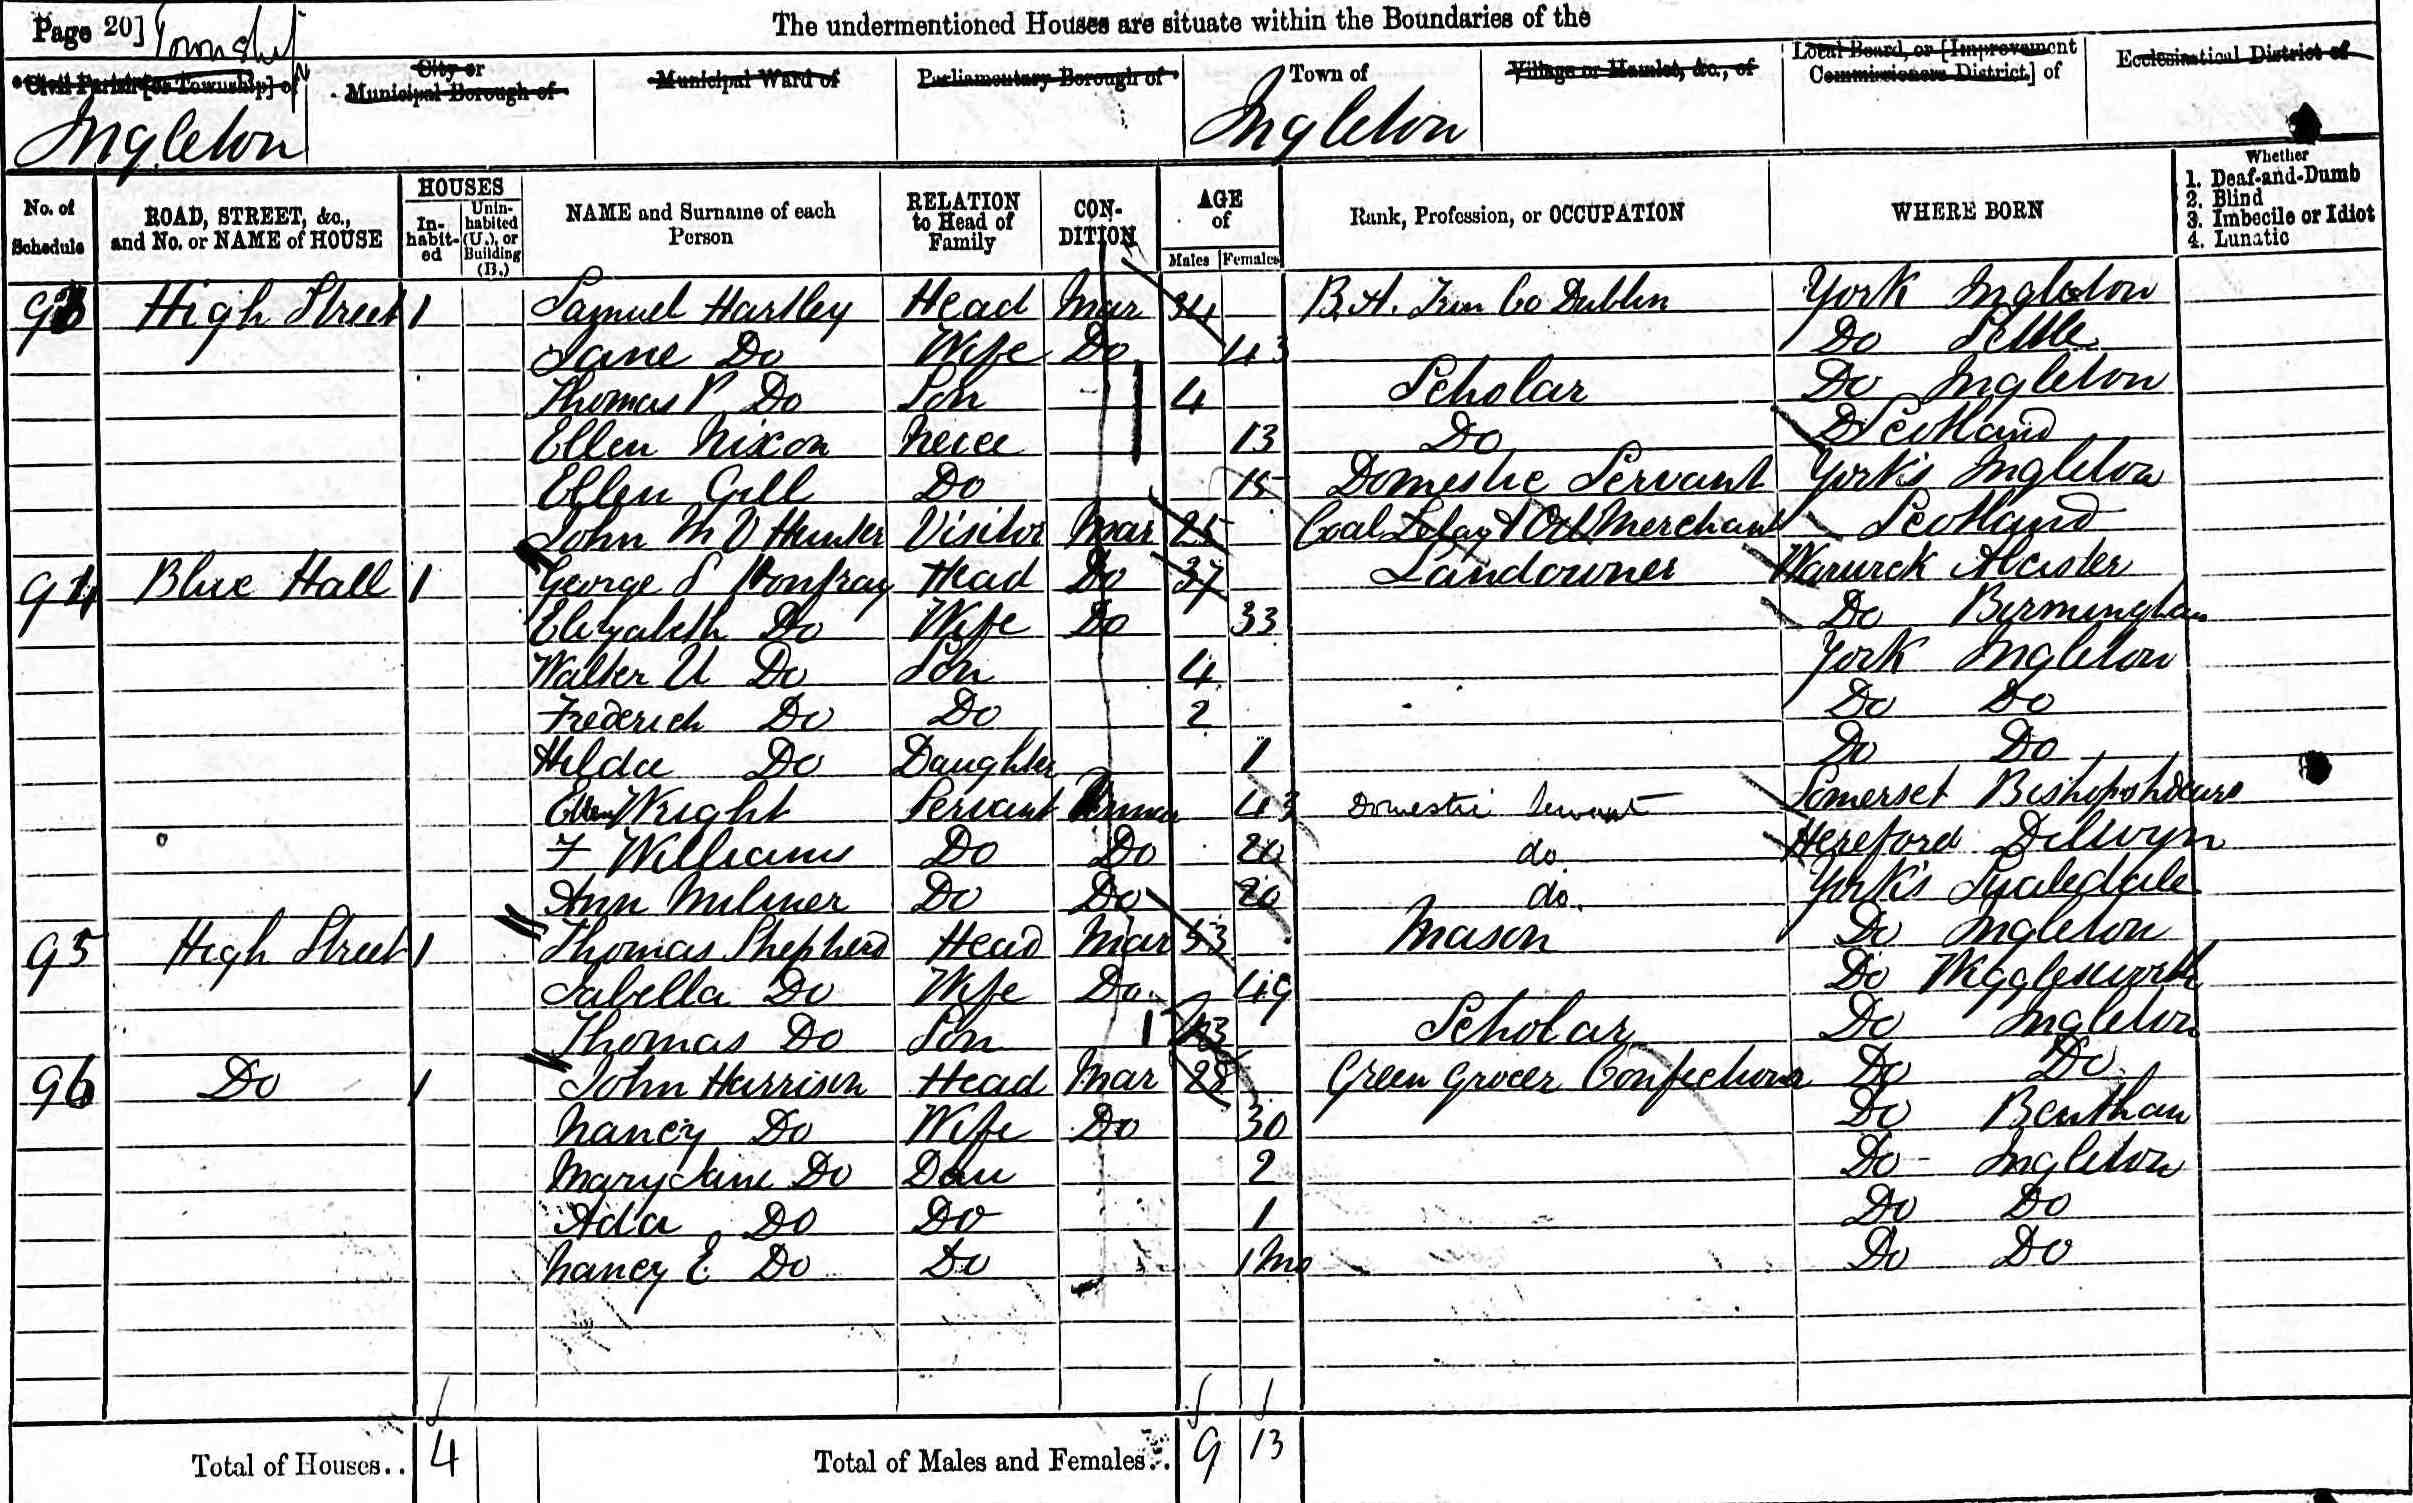 Page 20] Township
The undermentioned Houses are situate within the Boundaries of the
Civil Parish [or Township] of
City or Municipal Borough of
Municipal Ward of
Parliamentary Borough of
Town of
Village or Hamlet, &c., of
Local Board, or [Improvement Commissioners District] of
Ecclesiastical District of
Ingleton Ingleton
No. of Schedule
ROAD, STREET, &c., and No. or NAME of HOUSE
HOUSES
Inhabited
Uninhabited (U.), or Building (B.)
NAME and Surname of each Person
RELATION to Head of Family
CONDITION
AGE of
Males Females
Rank, Profession, or OCCUPATION
WHERE BORN
Whether
1. Deaf-and-Dumb
2. Blind
3. Imbecile or Idiot
4. Lunatic
93 High Street 1 Samuel Hartley Head Mar 34 Co Dublin York Ingleton
Jane Do Wife Do 43 Do Settle
Thomas P Do Son 4 Scholar Do Ingleton
Ellen Nixon Neice 13 Do Scotland
Ellen Gill Do 15 Domestic Servant York's Ingleton
John M V Hunter Visitor Mar 25 Coal Merchant Scotland
94 Blue Hall 1 George S Head Do 37 Landowner Warwick Alcister
Elizabeth Do Wife Do 33 Do Birmingham
Walter U Do Son 4 York Ingleton
Frederich Do Do 2 Do Do
Hilda Do Daughter 1 Do Do
Wright Servant Unmar 43 Domestic Servant Somerset
F Williams Do Do 20 do Hereford Dilwyn
Ann Milner Do Do 20 do. York's
95 High Street 1 Thomas Shepherd Head Mar 53 Mason Do Ingleton
Isabella Do Wife Do 49 Do Wigglesworth
Thomas Do Son 13 Scholar Do Ingleton
96 Do 1 John Harrison Head Mar 28 Green Grocer Confectioner Do Do
Nancy Do Wife Do 30 Do Bentham
Mary Jane Do Dau 2 Do Ingleton
Ada Do Do 1 Do Do
Nancy E. Do Do 1 Mo Do Do
Total of Houses.. 4 Total of Males and Females.. 9 13